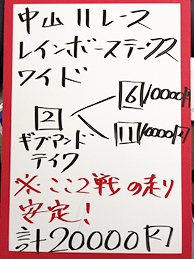 中山11レース
レインボーステークス
ワイド
2 6 10000円
11 10000円
ギブアンド
テイク
※ここ2戦の走り
安定!
計20000円